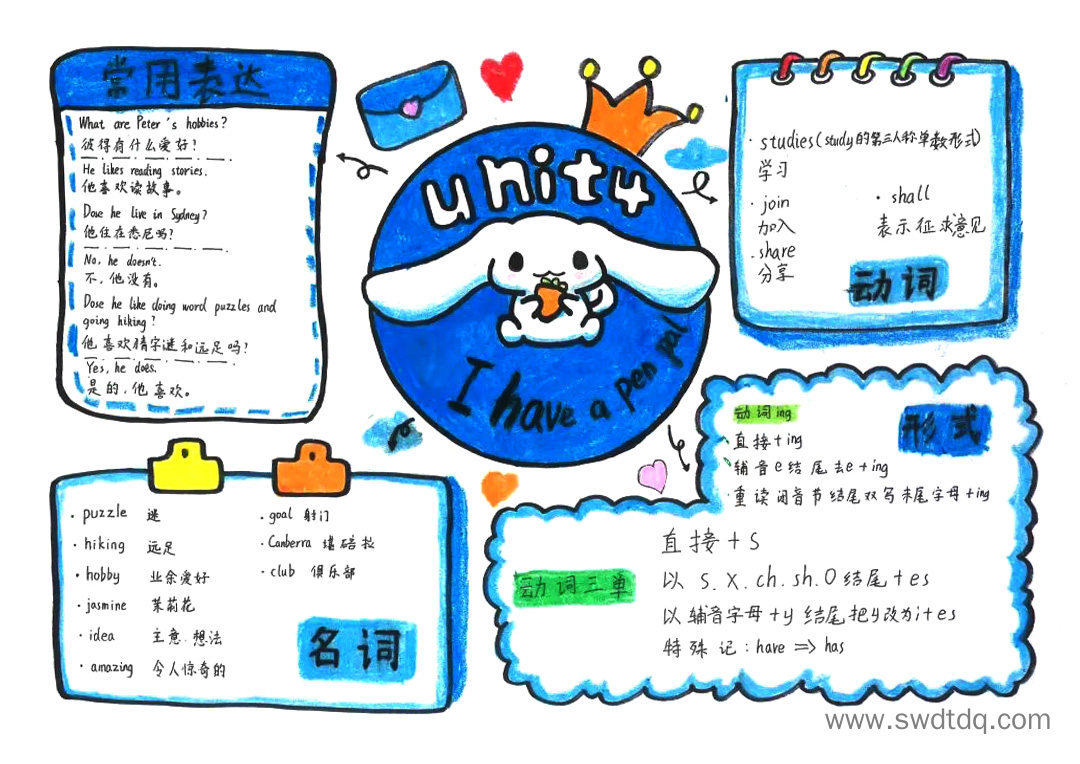 常用表达
What are Peter's hobbies?
彼得有什么爱好?
He likes reading stories.
他喜欢读故事。
Dose he live in Sydney?
他住在悉尼吗?
No, he doesn't.
不,他没有。
Dose he like doing word puzzles and
going hiking?
他喜欢猜字谜和远足吗?
Yes, he does.
是的,他喜欢。
unit4
I have a pen pal
studies(study的第三人称单数形式)
学习
join
加入
share
分享
shall
表示征求意见
动词
puzzle 谜
hiking 远足
hobby 业余爱好
jasmine 茉莉花
idea 主意.想法
amazing 令人惊奇的
goal 射门
Canberra 堪培拉
club 俱乐部
名词
形式
动词ing
直接+ing
辅音e结尾去e+ing
重读闭音节结尾双写末尾字母+ing
动词三单
直接+s
以 s.x.ch.sh.O结尾+es
以辅音字母+y结尾把y改为i+es
特殊记:have => has
www.swdtdq.com